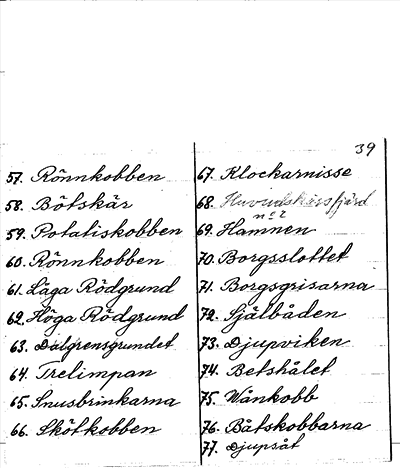 39
57. Rönnkobben
58. Bötskär
59. Potatiskobben
60. Rönnkobben
61. Låga Rödgrund
62. Höga Rödgrund
63. Dalgrensgrundet
64. Trelimpan
65. Snusbrinkarna
66. Skötkobben
67. Klockarnisse
68. Huvudskärsfjärd
n:o 2
69. Hamnen
70. Borgsslottet
71. Borgsgrisarna
72. Själbåden
73. Djupviken
74. Betshålet
75. Wånkobb
76. Båtskobbarna
77. Djupsåt